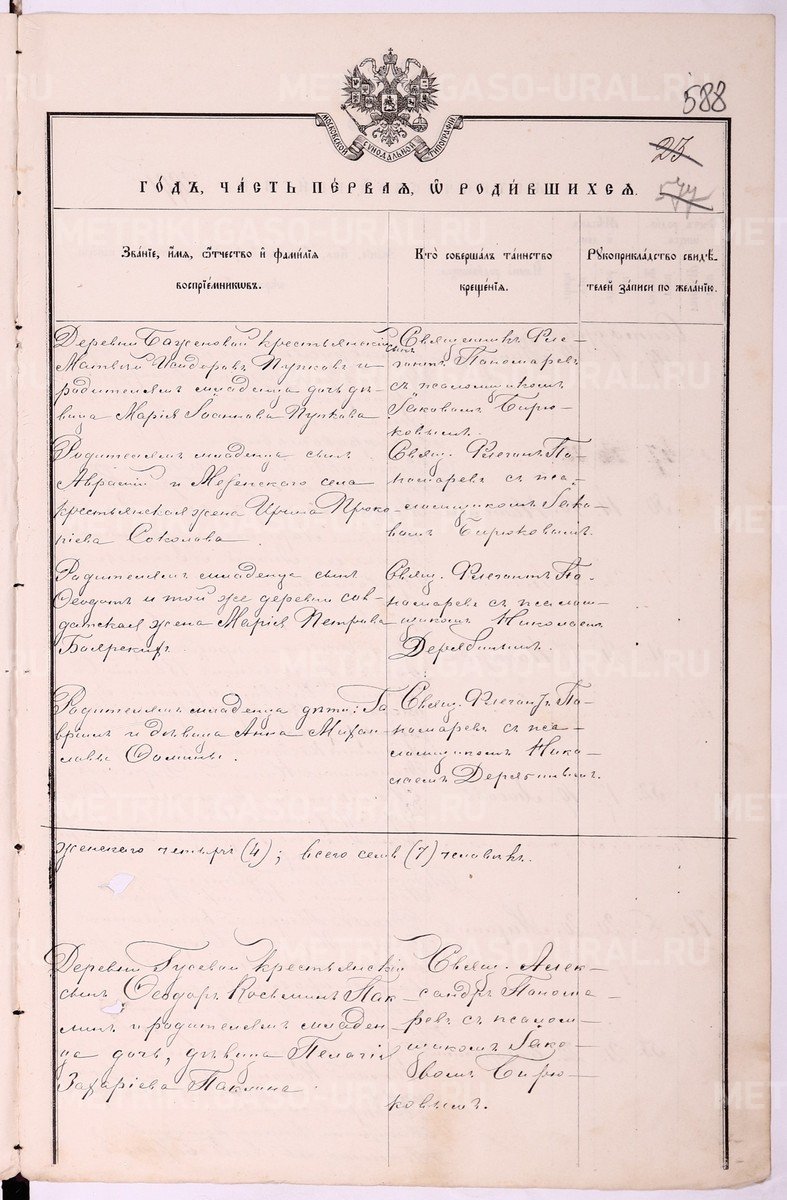 588
МОСКОВСКОЙ СУНОДАЛЬНОЙ ТИПОГРАФІИ
23
577
ГОДЪ, ЧАСТЬ ПЕРВАЯ, Ѡ РОДИВШИХСЯ.
Званіе, имя, ѻтчество и фамилія
воспріемниковъ.
Кто совершалъ таинство
крещенія.
Рукоприкладство свидѣ-
телей записи по желанію.
Деревни Баженовой крестьянскій сынъ
Матвей Исидоровъ Пупковъ и
родителямъ младенца дочь дѣ-
вица Марія Іоаннова Пупкова
Священникъ Фле-
гонтъ Пономаревъ
съ псаломщикомъ
Іаковомъ Бирю-
ковымъ.
Родителямъ младенца сынъ
Аврамій и Мезенского села
крестьянская жена Ирина Проко-
піева Соколова
Свящ. Флегонтъ По-
номаревъ съ пса-
ломщикомъ Іако-
вомъ Бирюковымъ.
Родителямъ младенца сынъ
Ѳеодотъ и той же деревни сол-
датская жена Марія Петрова
Боярскихъ.
Свящ. Флегонтъ По-
номаревъ съ псалом-
щикомъ Николаемъ
Дерябинымъ.
Родителямъ младенца дѣти: Га-
вріилъ и дѣвица Анна Михаи-
ловы Ѳомины.
Свящ. Флегонтъ По-
номаревъ съ пса-
ломщикомъ Нико-
лаемъ Дерябинымъ.
женского четыре (4); всего семь (7) человѣкъ.
Деревни Гусевой крестьянскій
сынъ Ѳеодоръ Косьминъ Пак-
линъ и родителямъ младен-
ца дочь, дѣвица Пелагія
Захаріева Паклина.
Свящ. Алек-
сандръ Понома-
ревъ съ псалом-
щикомъ Іако-
вомъ Бирю-
ковымъ.
METRIKI.GASO-URAL.RU